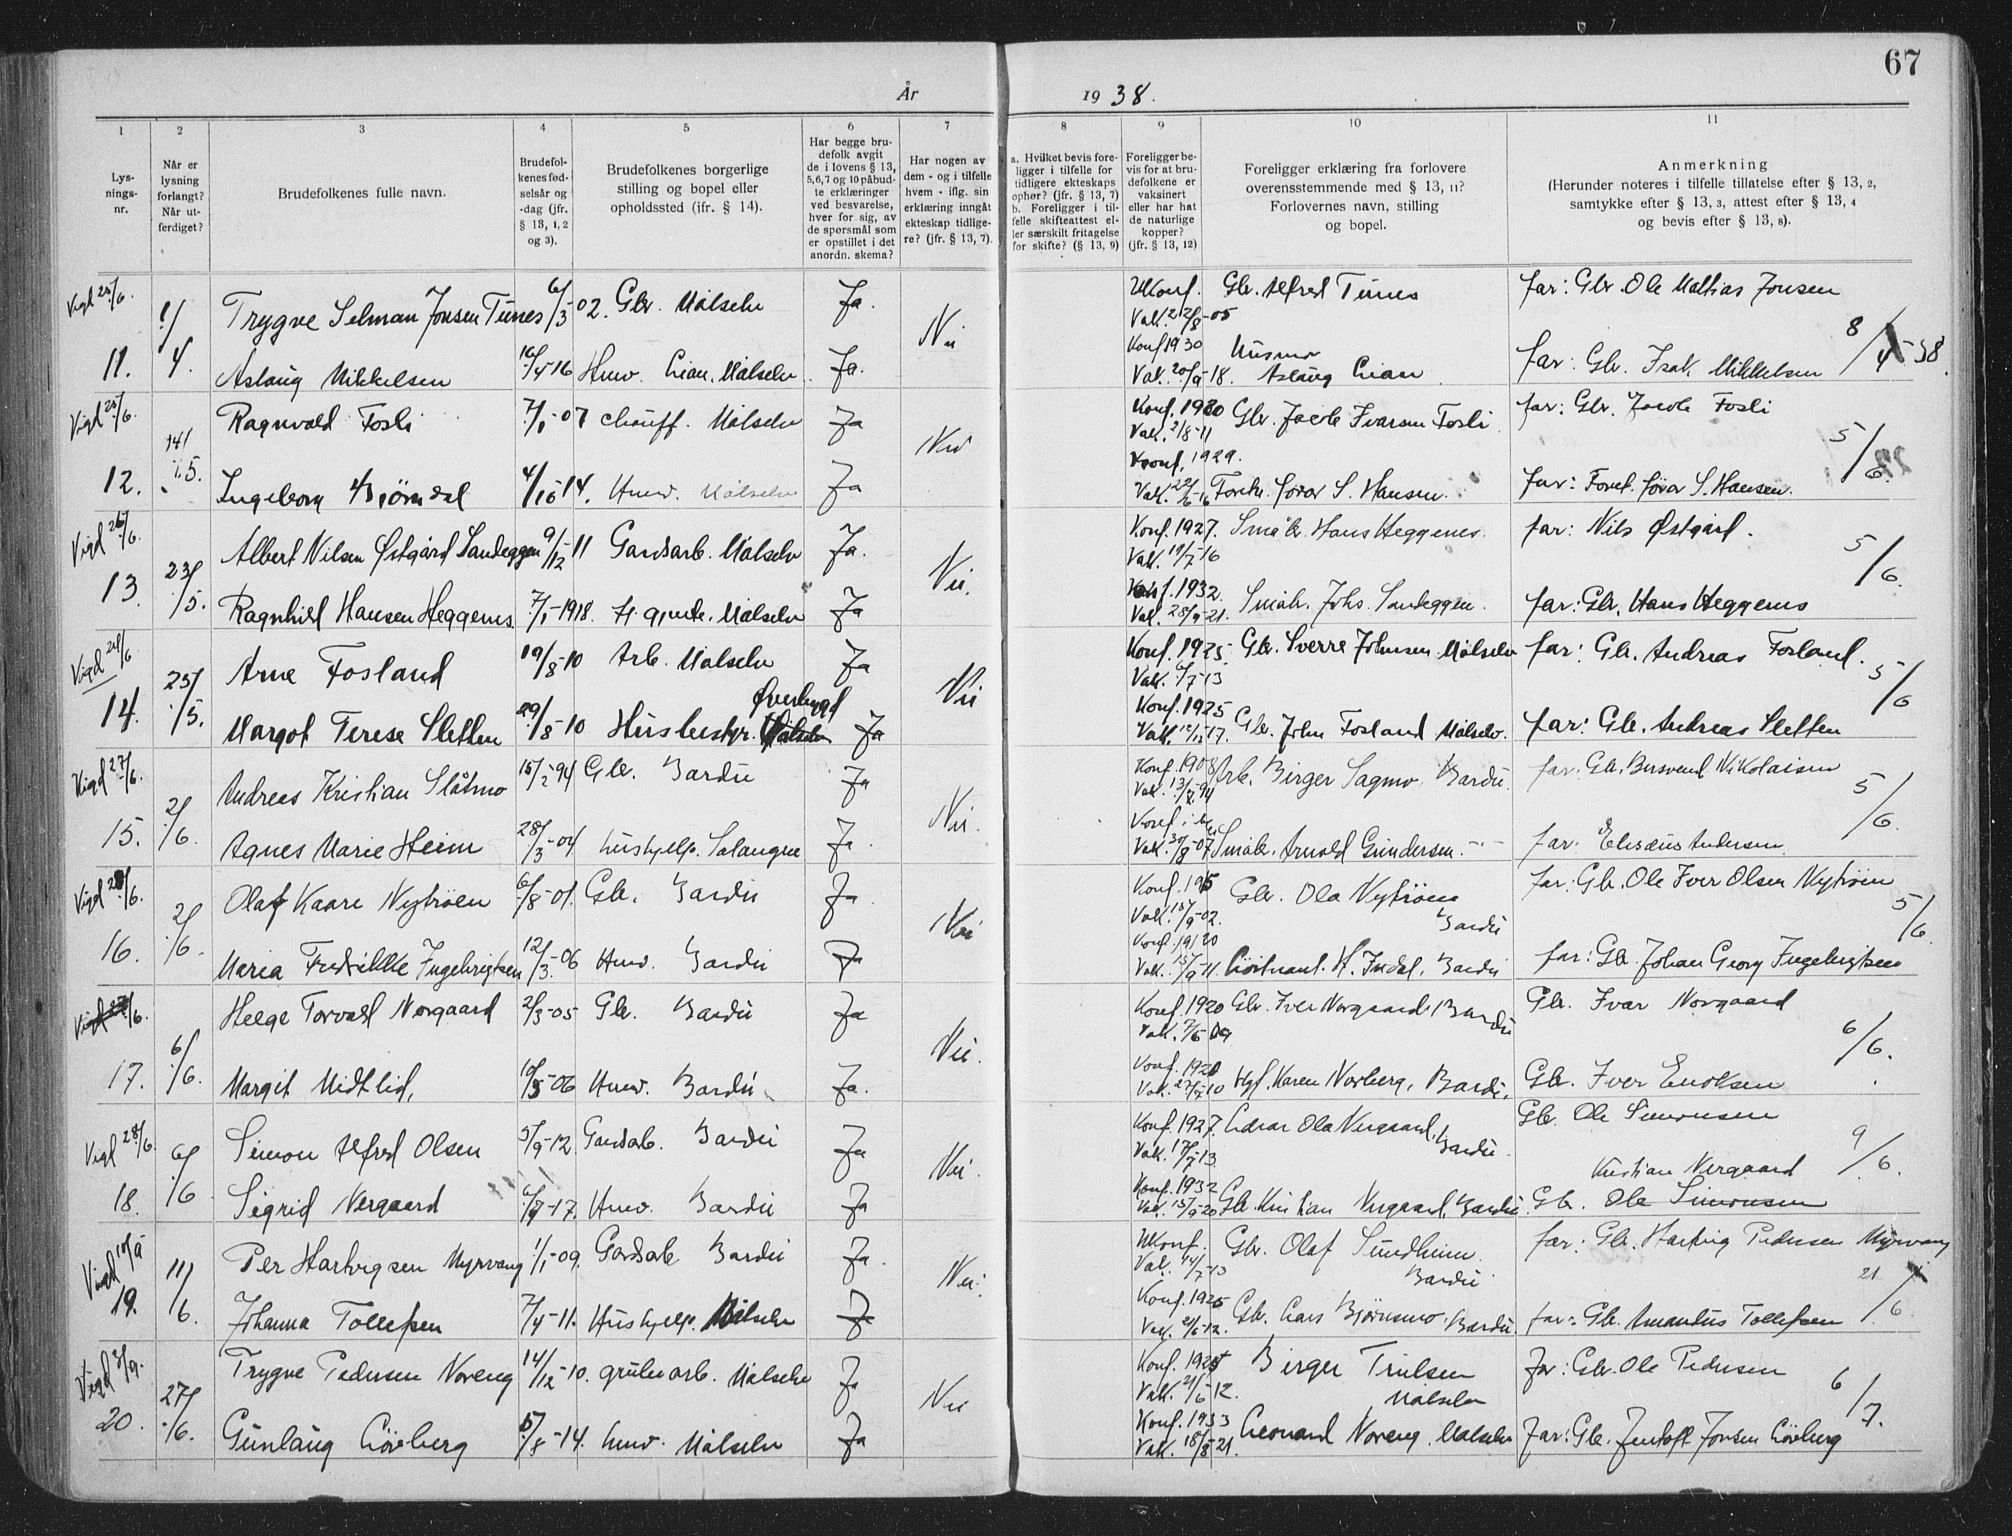 67
År 1938.
1 2 3 4 5 6 7 8 9 10 11
Lysningsnr.
Når er lysning forlangt? Når utferdiget?
Brudefolkenes fulle navn.
Brudefolkenes fødselsår og -dag (jfr. § 13, 1, 2 og 3).
Brudefolkenes borgerlige stilling og bopel eller opholdssted (jfr. § 14).
Har begge brudefolk avgit de i lovens § 13, 5, 6, 7 og 10 påbudte erklæringer ved besvarelse, hver for sig, av de spørsmål som er opstillet i det anordn. skema?
Har nogen av dem - og i tilfelle hvem - iflg. sin erklæring inngåt ekteskap tidligere? (jfr. § 13, 7).
a. Hvilket bevis foreligger i tilfelle for tidligere ekteskaps ophør? (jfr. § 13, 7)
b. Foreligger i tilfelle skifteattest eller særskilt fritagelse for skifte? (§ 13, 9)
Foreligger bevis for at brudefolkene er vaksinert eller har hat de naturlige kopper? (jfr. § 13, 12)
Foreligger erklæring fra forlovere overensstemmende med § 13, 11? Forlovernes navn, stilling og bopel.
Anmerkning
(Herunder noteres i tilfelle tillatelse efter § 13, 2, samtykke efter § 13, 3, attest efter § 13, 4 og bevis efter § 13, 8).
Vigd 25/6. Trygve Selman Jonsen Tunes 6/3 02. Gbr. Målselv Ja. Gbr. Alfred Tunes far: Gbr. Ole Mathias Jonsen
Nei
11. 1/4. Aslaug Mikkelsen 16/4-16 Husv. Lian. Målselv. Ja. Konf 1930 Vak. 20/9-18. Husmor Aslaug Lian far: Gbr. Isak Mikkelsen 8/4-38
Vigd 25/6. Ragnvald Fosli 7/1-07 Chauff. Målselv Ja Vak. 2/8-11 Gbr. Jacob Ivarsen Fosli. far: Gbr. Jacob Fosli
Nei
12. 14/5. Ingeborg Bjørndal 4/10 14. Husv. Målselv Ja konf. 1929. S. Hansen. far: S. Hansen. 5/6.
Vigd 26/6. Albert Nilsen Østgård Sandeggen 9/12 11 Gårdsarb. Målselv Ja. Konf. 1927. Vak. 19/7-16 Småbr. Hans Heggenes. far: Nils Østgård.
Nei.
13. 23/5. Ragnhild Hansen Heggenes 7/1-1918. Målselv Ja Konf. 1932. Vak. 28/9-21. Småbr. Johs. Sandeggen. far: Gbr. Hans Heggenes 5/6.
Vigd 24/6 Arne Fosland 19/8-10 Arb. Målselv Ja Konf. 1925. Vak. 6/7-13 Gbr. Sverre Johnsen Målselv far: Gbr. Andreas Fosland.
Nei
14. 25/5. Margot Terese Sletten 29/8-10 Husbestyr. Øverbygd Målselv Ja Konf. 1925 Gbr. John Fosland Målselv. far: Gbr. Andreas Sletten 5/6
Vigd 27/6. Andreas Kristian Slåtmo 15/2-94 Gbr. Bardu Ja Konf. 1908 Arb. Birger Sagmo, Bardu. far: Gbr. Nikolaisen
Nei.
15. 2/6. Agnes Marie Heim 28/3-04 hushjelp. Salangne Ja. Vak. 30/8-07 Småbr. Arnold Gundersen. far: Elisæus Andersen 5/6.
Vigd 28/6. Olaf Kaare Nytrøen 6/8-01. Gbr. Bardu Ja Konf. 1915 Vak. 15/9-02. Gbr. Ola Nytrøen Bardu far: Gbr. Ole Iver Olsen Nytrøen
Nei
16. 2/6. Maria Fredrikke Ingebrigtsen 12/3-06 Husv. Bardu Ja Konf. 1920 Vak. 15/9-11. Løitnant. H. Indal, Bardu far: Gbr. Johan Georg Ingebrigtsen 5/6.
Vigd 27/6. Helge Torvald Norgaard 2/3-05 Gbr. Bardu Ja Konf. 1920 Vak. 7/6 09 Gbr. Iver Norgaard, Bardu Gbr. Ivar Norgaard
Nei.
17. 6/6. Margit Midtlid, 10/5-06 Husv. Bardu Ja. Konf. 1920 Karen Norberg, Bardu. Gbr. Iver Enoksen 6/6.
Vigd 28/6. Simon Alfred Olsen 5/9-12 Gårdsarb. Bardu Ja Konf. 1927. Vak. 17/7-13 Lærar Ola Nergaard, Bardu. Gbr. Ole Simonsen
Nei. Kristian Nergaard 9/6.
18. 6/6 Sigrid Nergaard 6/9-17. Husv. Bardu Ja Konf. 1932 Vak. 15/9-20 Gbr. Kristian Nergaard, Bardu. Gbr. Ole Simonsen
Vigd 10/9 Per Hartvigsen Myrvang 1/1-09. Gårdsarb Bardu Ja. Vak. 14/7-13 Gbr. Olaf Sundheim. Bardu far: Gbr. Hartvig Pedersen Myrvang
Nei.
19. 11/6. Johanna Tollefsen 7/4-11. Hushjelp. Målselv Ja Konf. 1925 Vak. 2/6-12. Gbr. Lars Bjørnsmo, Bardu. far: Gbr. Amandus Tollefsen 21/6.
Vigd 3/9. Trygve Pedersen Noreng 14/12-10. grubearb. Målselv Ja Konf. 1925 Vak. 21/6-12. Birger Trulsen Målselv far: Gbr. Ole Pedersen
Nei
20. 27/6. Gunlaug Løvberg 5/8-14. husv. Målselv Ja Konf. 1933 Vak. 18/8-21. Leonard Noreng. Målselv far: Gbr. Jentoft Jonsen Løvberg 6/7.